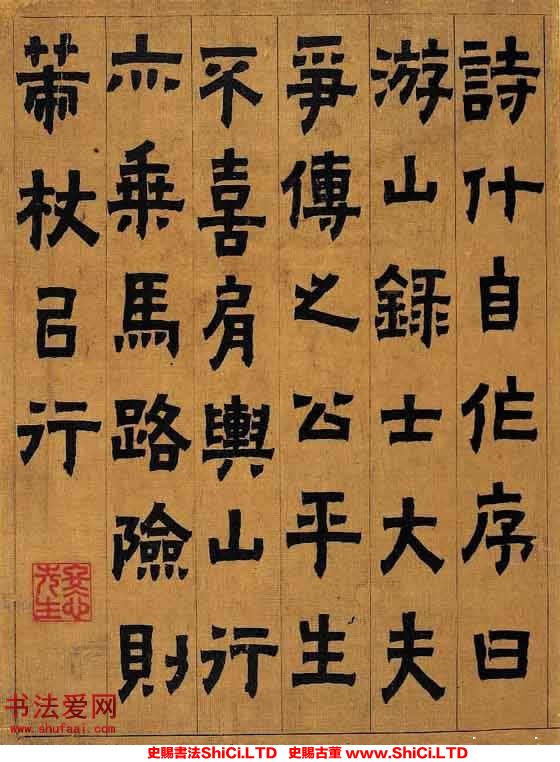 詩什自作序曰
游山録士大夫
爭傳之公平生
不喜肩輿山行
亦乘馬路險則
策杖㠯行
安心先生
书法爱网
www.shufaai.com
史賜書法ShiCi.LTD 史賜古董 www.ShiCi.LTD